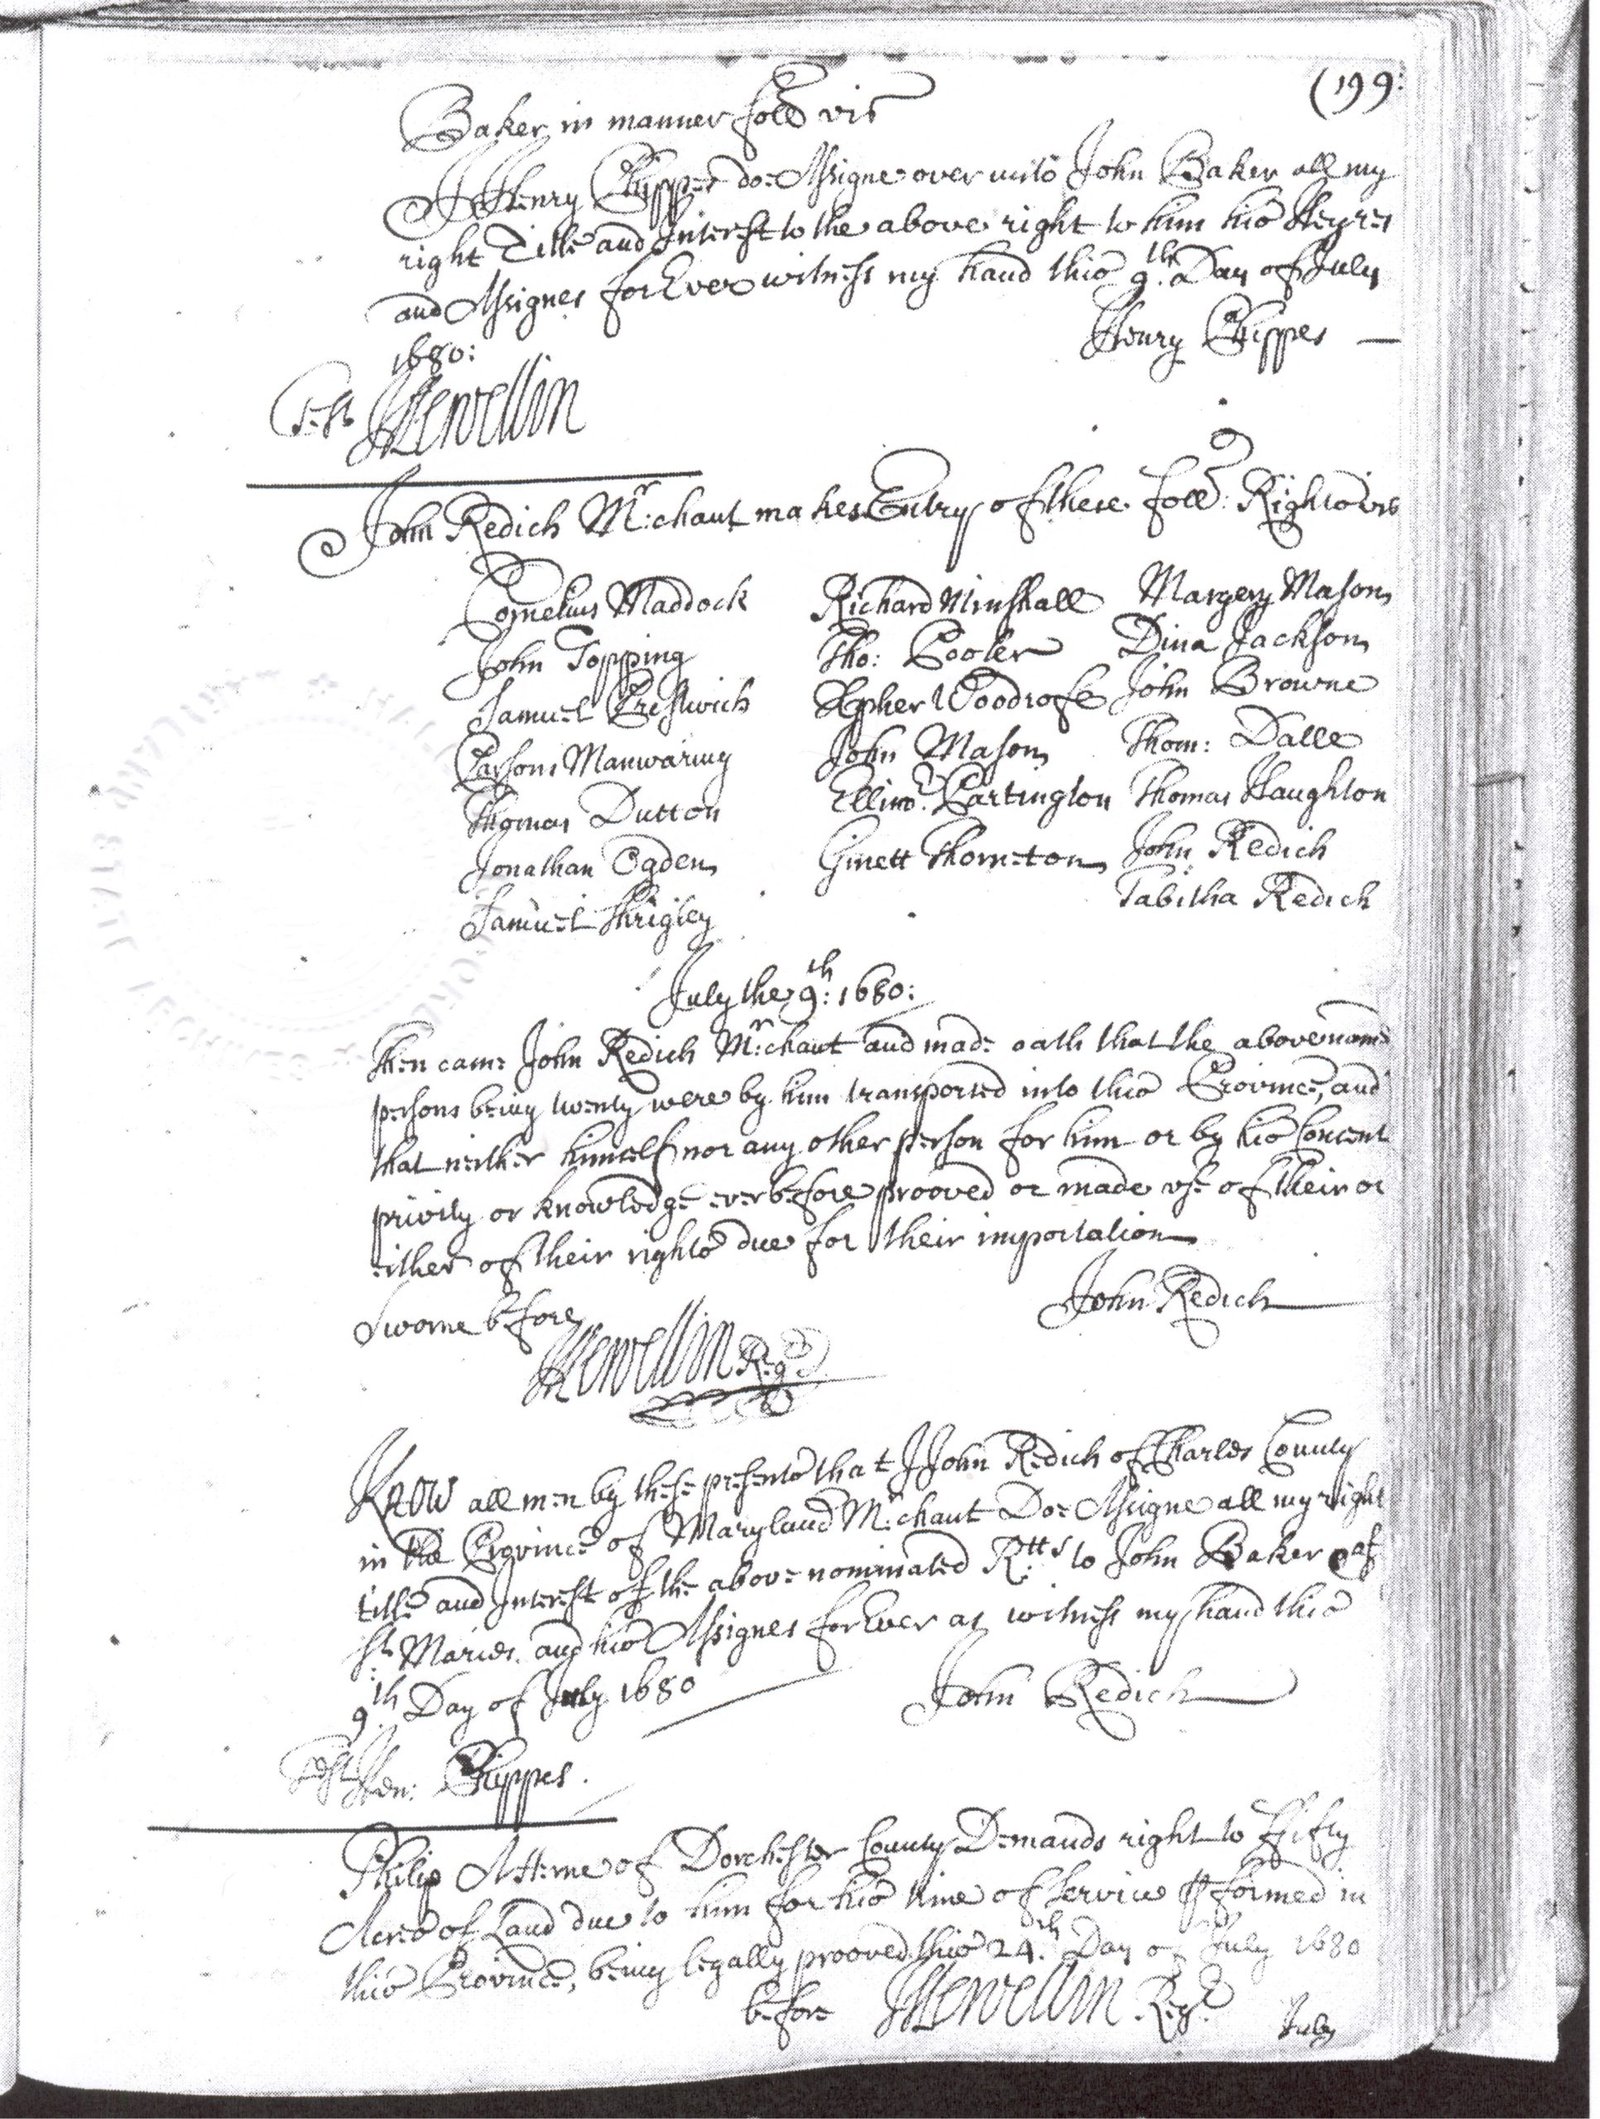 (199:
Baker in manner foll vis
I Henry Phippes doe Assigne over unto John Baker all my
right Title and Interest to the above right to him his Heyres
and Assignes for Ever witness my hand this 9th: Day of July
1680: Henry Phippes
Test JLlewellin
John Redich Mr:chant makes Entry of these foll: Rights vis
Cornelius Maddock Richard Minshall Margery Mason
John Topping Tho: Pooler Dina Jackson
Samuel Prestwich Xpher Woodrofe John Browne
Parsons Manwaring John Mason Thom: Dalle
Thomas Dutton Ellinor: Partington Thomas Haughton
Jonathan Ogden Ginett Thorneton John Redich
Samuel Shrigley Tabitha Redich
July the 9th: 1680:
Then came John Redich Mr:chant and made oath that the abovenamed
persons being twenty were by him transported into this Province, and
that neither himself nor any other person for him or by his Consent
privity or knowledge ever before prooved or made use of their or
either of their rights due for their importation
Sworne before John Redich
JLlewellin Regr
Know all men by these presents that I John Redich of Charles County
in the Province of Maryland Mr:chant Doe Assigne all my right
title and Interest of the above nominated R:tts to John Baker of
St: Maries and his Assignes for Ever as witness my hand this
9th Day of July 1680 John Redich
Test Hen: Phippes.
Philip Atterne of Dorchester County Demands right to Fifty
Acres of Land due to him for his time of Service pformed in
this Province, being legally prooved this 24th: Day of July 1680
before JLlewellin Regr.
July